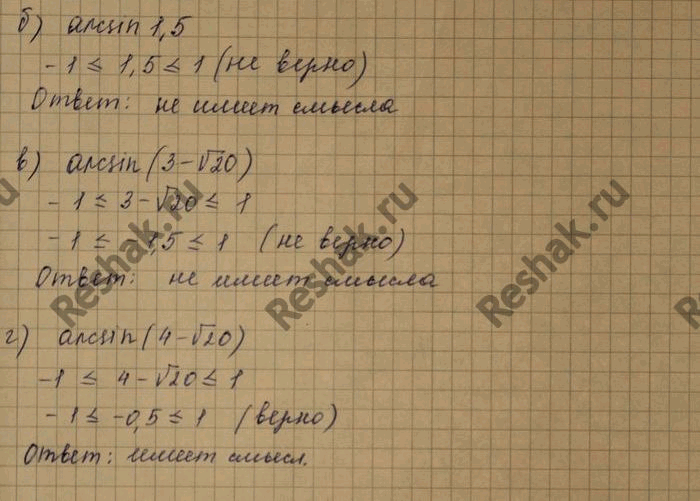 б) arcsin 1,5
-1 ≤ 1,5 ≤ 1 (не верно)
Ответ: не имеет смысла
в) arcsin (3-√20)
-1 ≤ 3-√20 ≤ 1
-1 ≤ -1,5 ≤ 1 (не верно)
Ответ: не имеет смысла
г) arcsin (4-√20)
-1 ≤ 4-√20 ≤ 1
-1 ≤ -0,5 ≤ 1 (верно)
Ответ: имеет смысл.
Reshak.ru
Reshak.ru
Reshak.ru